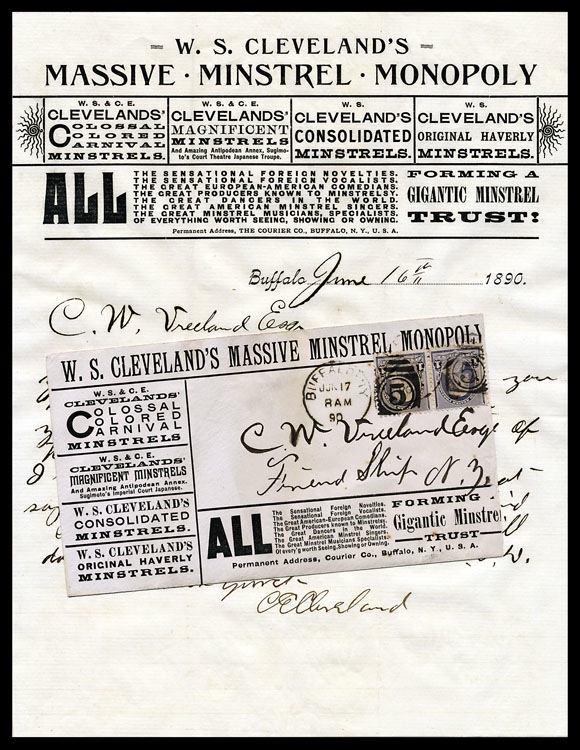 W. S. CLEVELAND'S
MASSIVE · MINSTREL · MONOPOLY
W. S. & C. E.
CLEVELANDS'
COLOSSAL
COLORED
CARNIVAL
MINSTRELS.
W. S. & C. E.
CLEVELANDS'
MAGNIFICENT
MINSTRELS
And Amazing Antipodean Annex, Sugimo-
to's Court Theatre Japanese Troupe.
W. S.
CLEVELAND'S
CONSOLIDATED
MINSTRELS.
W. S.
CLEVELAND'S
ORIGINAL HAVERLY
MINSTRELS.
ALL
THE SENSATIONAL FOREIGN NOVELTIES.
THE SENSATIONAL FOREIGN VOCALISTS.
THE GREAT EUROPEAN-AMERICAN COMEDIANS.
THE GREAT PRODUCERS KNOWN TO MINSTRELSY.
THE GREAT DANCERS IN THE WORLD.
THE GREAT AMERICAN MINSTREL SINGERS.
THE GREAT MINSTREL MUSICIANS, SPECIALISTS.
OF EVERYTHING WORTH SEEING, SHOWING OR OWNING.
FORMING A
GIGANTIC MINSTREL
TRUST!
Permanent Address, THE COURIER CO., BUFFALO, N. Y., U. S. A.
Buffalo, June 16th 1890.
C. W. Vreeland Esq.
you
of
I
W. S. CLEVELAND'S MASSIVE MINSTREL MONOPOLY
W. S. & C. E.
CLEVELANDS'
COLOSSAL
COLORED
CARNIVAL
MINSTRELS
W. S. & C. E.
CLEVELANDS'
MAGNIFICENT MINSTRELS
And Amazing Antipodean Annex.
Sugimoto's Imperial Court Japanese.
W. S. CLEVELAND'S
CONSOLIDATED
MINSTRELS.
W. S. CLEVELAND'S
ORIGINAL HAVERLY
MINSTRELS.
BUFFALO N.Y.
JUN 17
8 AM
90
5
C. W. Vreeland Esq
Friend Ship N. Y.
ALL
The Sensational Foreign Novelties.
The Sensational Foreign Vocalists.
The Great American-European Comedians.
The Great Producers known to Minstrelsy.
The Great Dancers in the World.
The Great American Minstrel Singers.
The Great Minstrel Musicians Specialists.
Of every'g worth Seeing, Showing or Owning.
FORMING A
Gigantic Minstrel
TRUST
Permanent Address, Courier Co., Buffalo, N. Y., U. S. A.
C E Cleveland